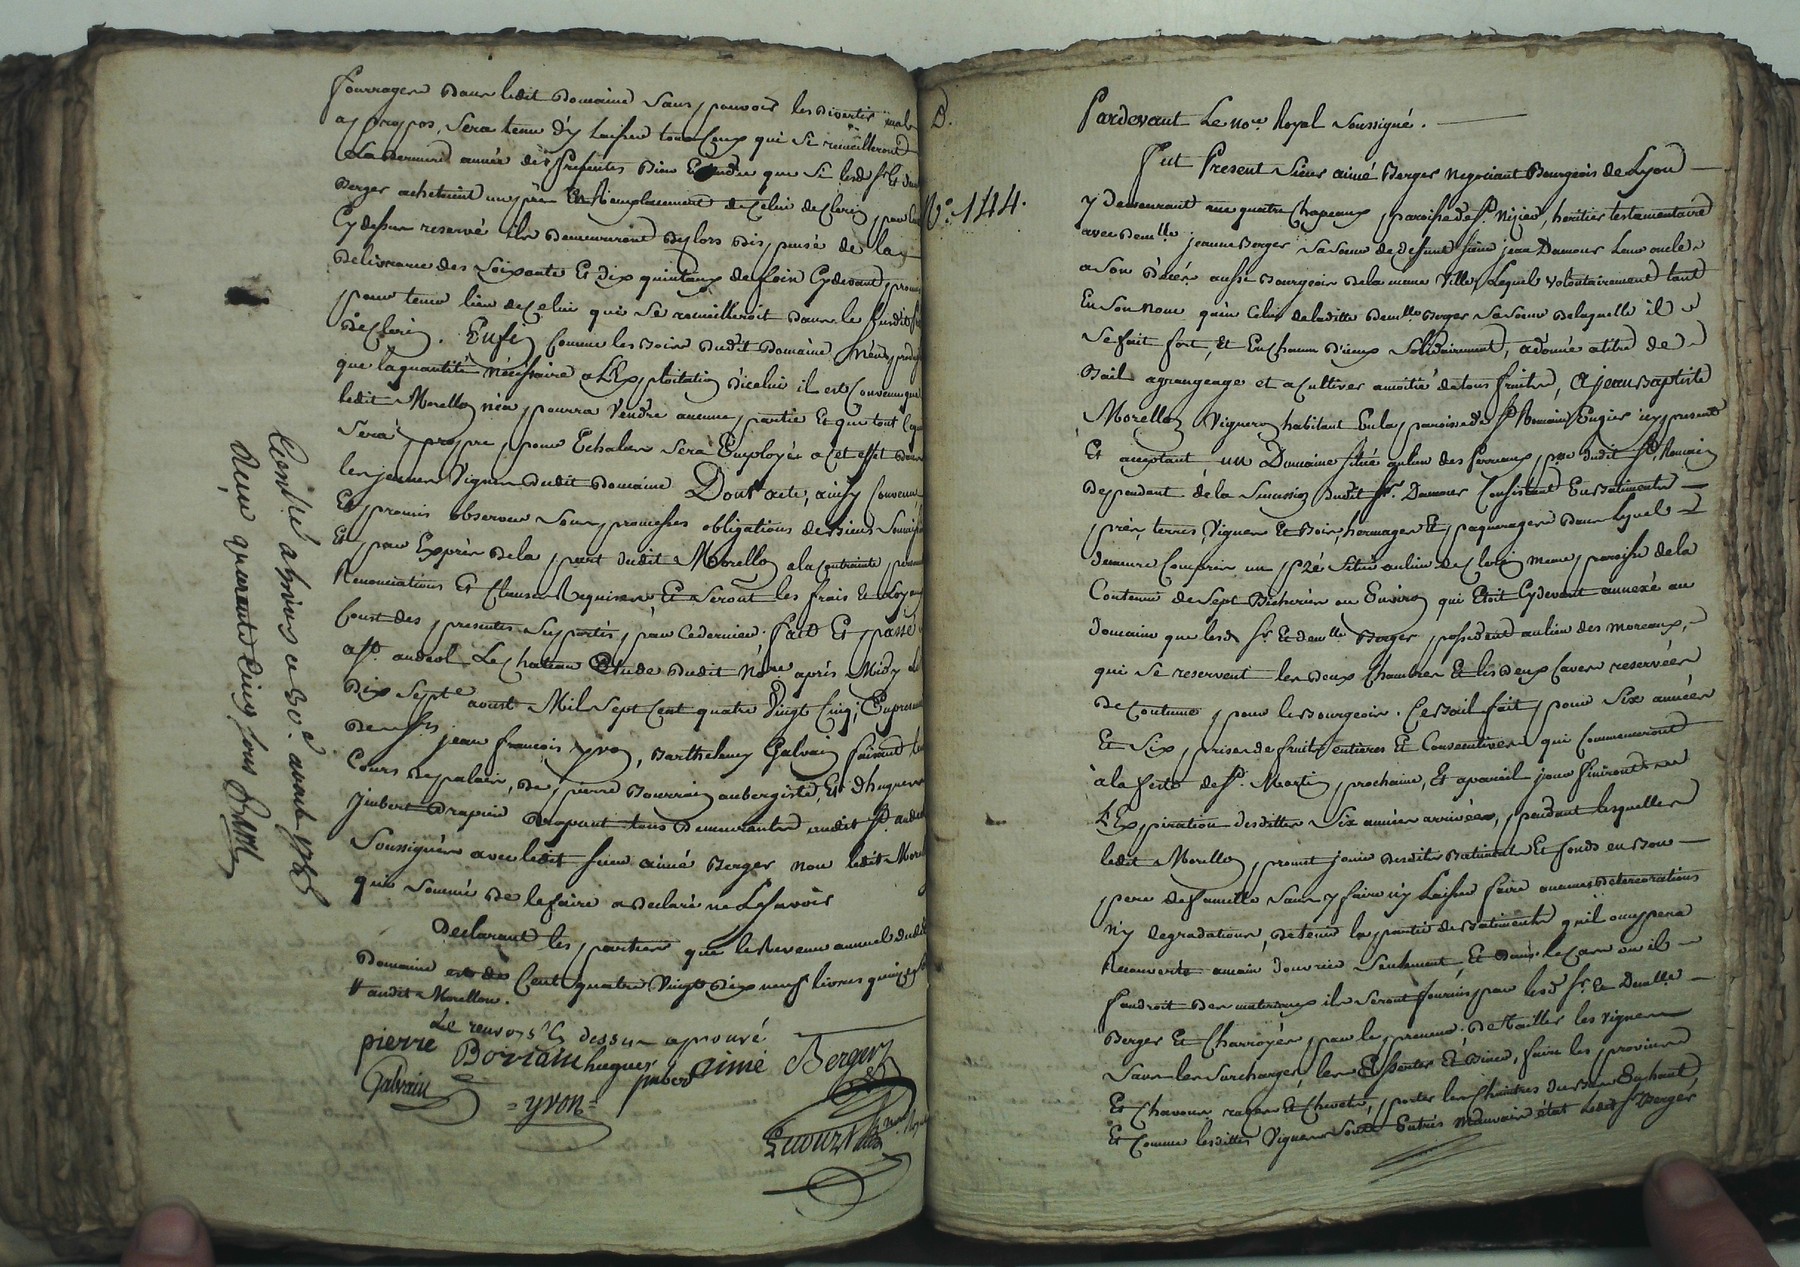 fourrages dans ledit Domaine sans pouvoir les divertir mal
apropos, sera tenu d'y laisser tous ceux qui se recueilleront
la derniere année des presentes Bien Entendu que si lesd. Sr. Et dlle
Berger achetoient un pré En Remplacement de Celui de Clerin, pour
Cydessus reservé ils demeureront deslors dispensé de la
delivrance des soixante Et dix quintaux de foin Cydevant promis
pour tenir lieu de Celui qui se recueilleroit dans le susdit pré
de Clerin. Enfin Comme les bois dudit Domaine n'en
que la quantité nécessaire a l'Exploitation d'icelui il est Convenu que
ledit Morellon n'en pourra vendre aucune partie Et que tout ce qui
sera propre pour Echalas sera Employés a cet effet dans
les jeunes Vignes dudit Domaine. Dont acte, ainsy Convenu
Et promis observer sous promesses obligations de biens
Et par Exprès de la part dudit Morellon a la contrainte
Renonciations Et Clauses Requises Et seront les frais Et Loyaux
Cousts des presentes Supportés par ce dernier. fait Et passé
a St. andeol Le Chateau Etude dudit Nore. après Midy Le
Dix Septe. aoust Mil Sept Cent quatre Vingt Cinq, En presence
de Srs jean françois yvon, Barthelemy Galvain suivant les
Cours de palais, de pierre Bourrain aubergiste, Et d'hugues
jmbert Drapier tous demeurants audit St. andeol
Soussignés avec ledit sieur aimé Berger non ledit Morellon
qui sommé de le faire a declaré ne Le savoir
Declarant les parties que le Revenu annuel dudit
Domaine est de Cent quatre Vingt Dix neuf livres quinze
# audit Morellon.
Le renvoy Cy dessus aprouvé
pierre Borrain hugues jmbert aimé Berger
Galvain = yvon =
Controlé a givors ce 30e. aoust 1785
Reçu quarante cinq sous
B.
No. 144.
Pardevant Le nore. Royal soussigné.
fut Present Sieur aimé Berger Negociant Bourgeois de Lyon
y demeurant rue quatre Chapeaux, paroisse de St. Nizier, heritier testamentaire
avec Demlle jeanne Berger sa soeur de defunt sieur jean Damour Leur oncle
a son décés aussi Bourgeois de la meme Ville, Lequel volontairement tant
En son Nom qu'en Celui de laditte Demlle Berger sa soeur de laquelle il
se fait fort, Et En Chacun d'ieux solidairement, a donné a titre de
Bail a grangeage et a Cultiver a moitié de tous fruits, a jean Baptiste
Morellon Vigneron habitant En la paroisse de St. Romain Engier icy present
Et acceptant, un Domaine situé au lieu des ferreaux, pse dudit St. Romain
Dependant de la Succession dudit Sr. Damour Consistant En Batiments
prés, terres, Vignes Et Bois, hermages Et paquerages dans lequel
demeure Compris un pré situé au lieu de Clerin meme paroisse de la
Contenue de sept Bicherées ou Environ qui Etoit Cydevant annexé au
domaine que lesd. Sr. Et demlle Berger possedent au lieu des moreaux,
qui se reservent les deux Chambres Et les deux Caves reservées
de Coutume pour le Bourgeois. Ce Bail fait pour six années
Et six prises de fruits entieres Et Consecutives qui Commenceront
à la feste de St. Martin prochaine, Et a pareil jour finiront
L'Expiration desdittes six années arrivées, pendant lesquelles
ledit Morellon promet jouir desdits Batiments Et fonds en Bon
pere de famille sans y faire n'y laisser faire aucunes Deteriorations
n'y degradations, de tenir la partie des batiments qu'il occupera
Recouverte a main d'ouvrier seulement, Et dans le Cas ou il
faudroit des materiaux ils seront fournis par lesd. Sr. Et Demlle.
Berger Et Charroyés par le preneur. De tailler les vignes
sans les surcharger, les Essenter Et Biner, faire les provins
Et Chavons, razes Et Chevets, porter les Chaintres du bas En haut,
Et Comme lesdittes Vignes sont En très mauvais état ledit Sr. Berger